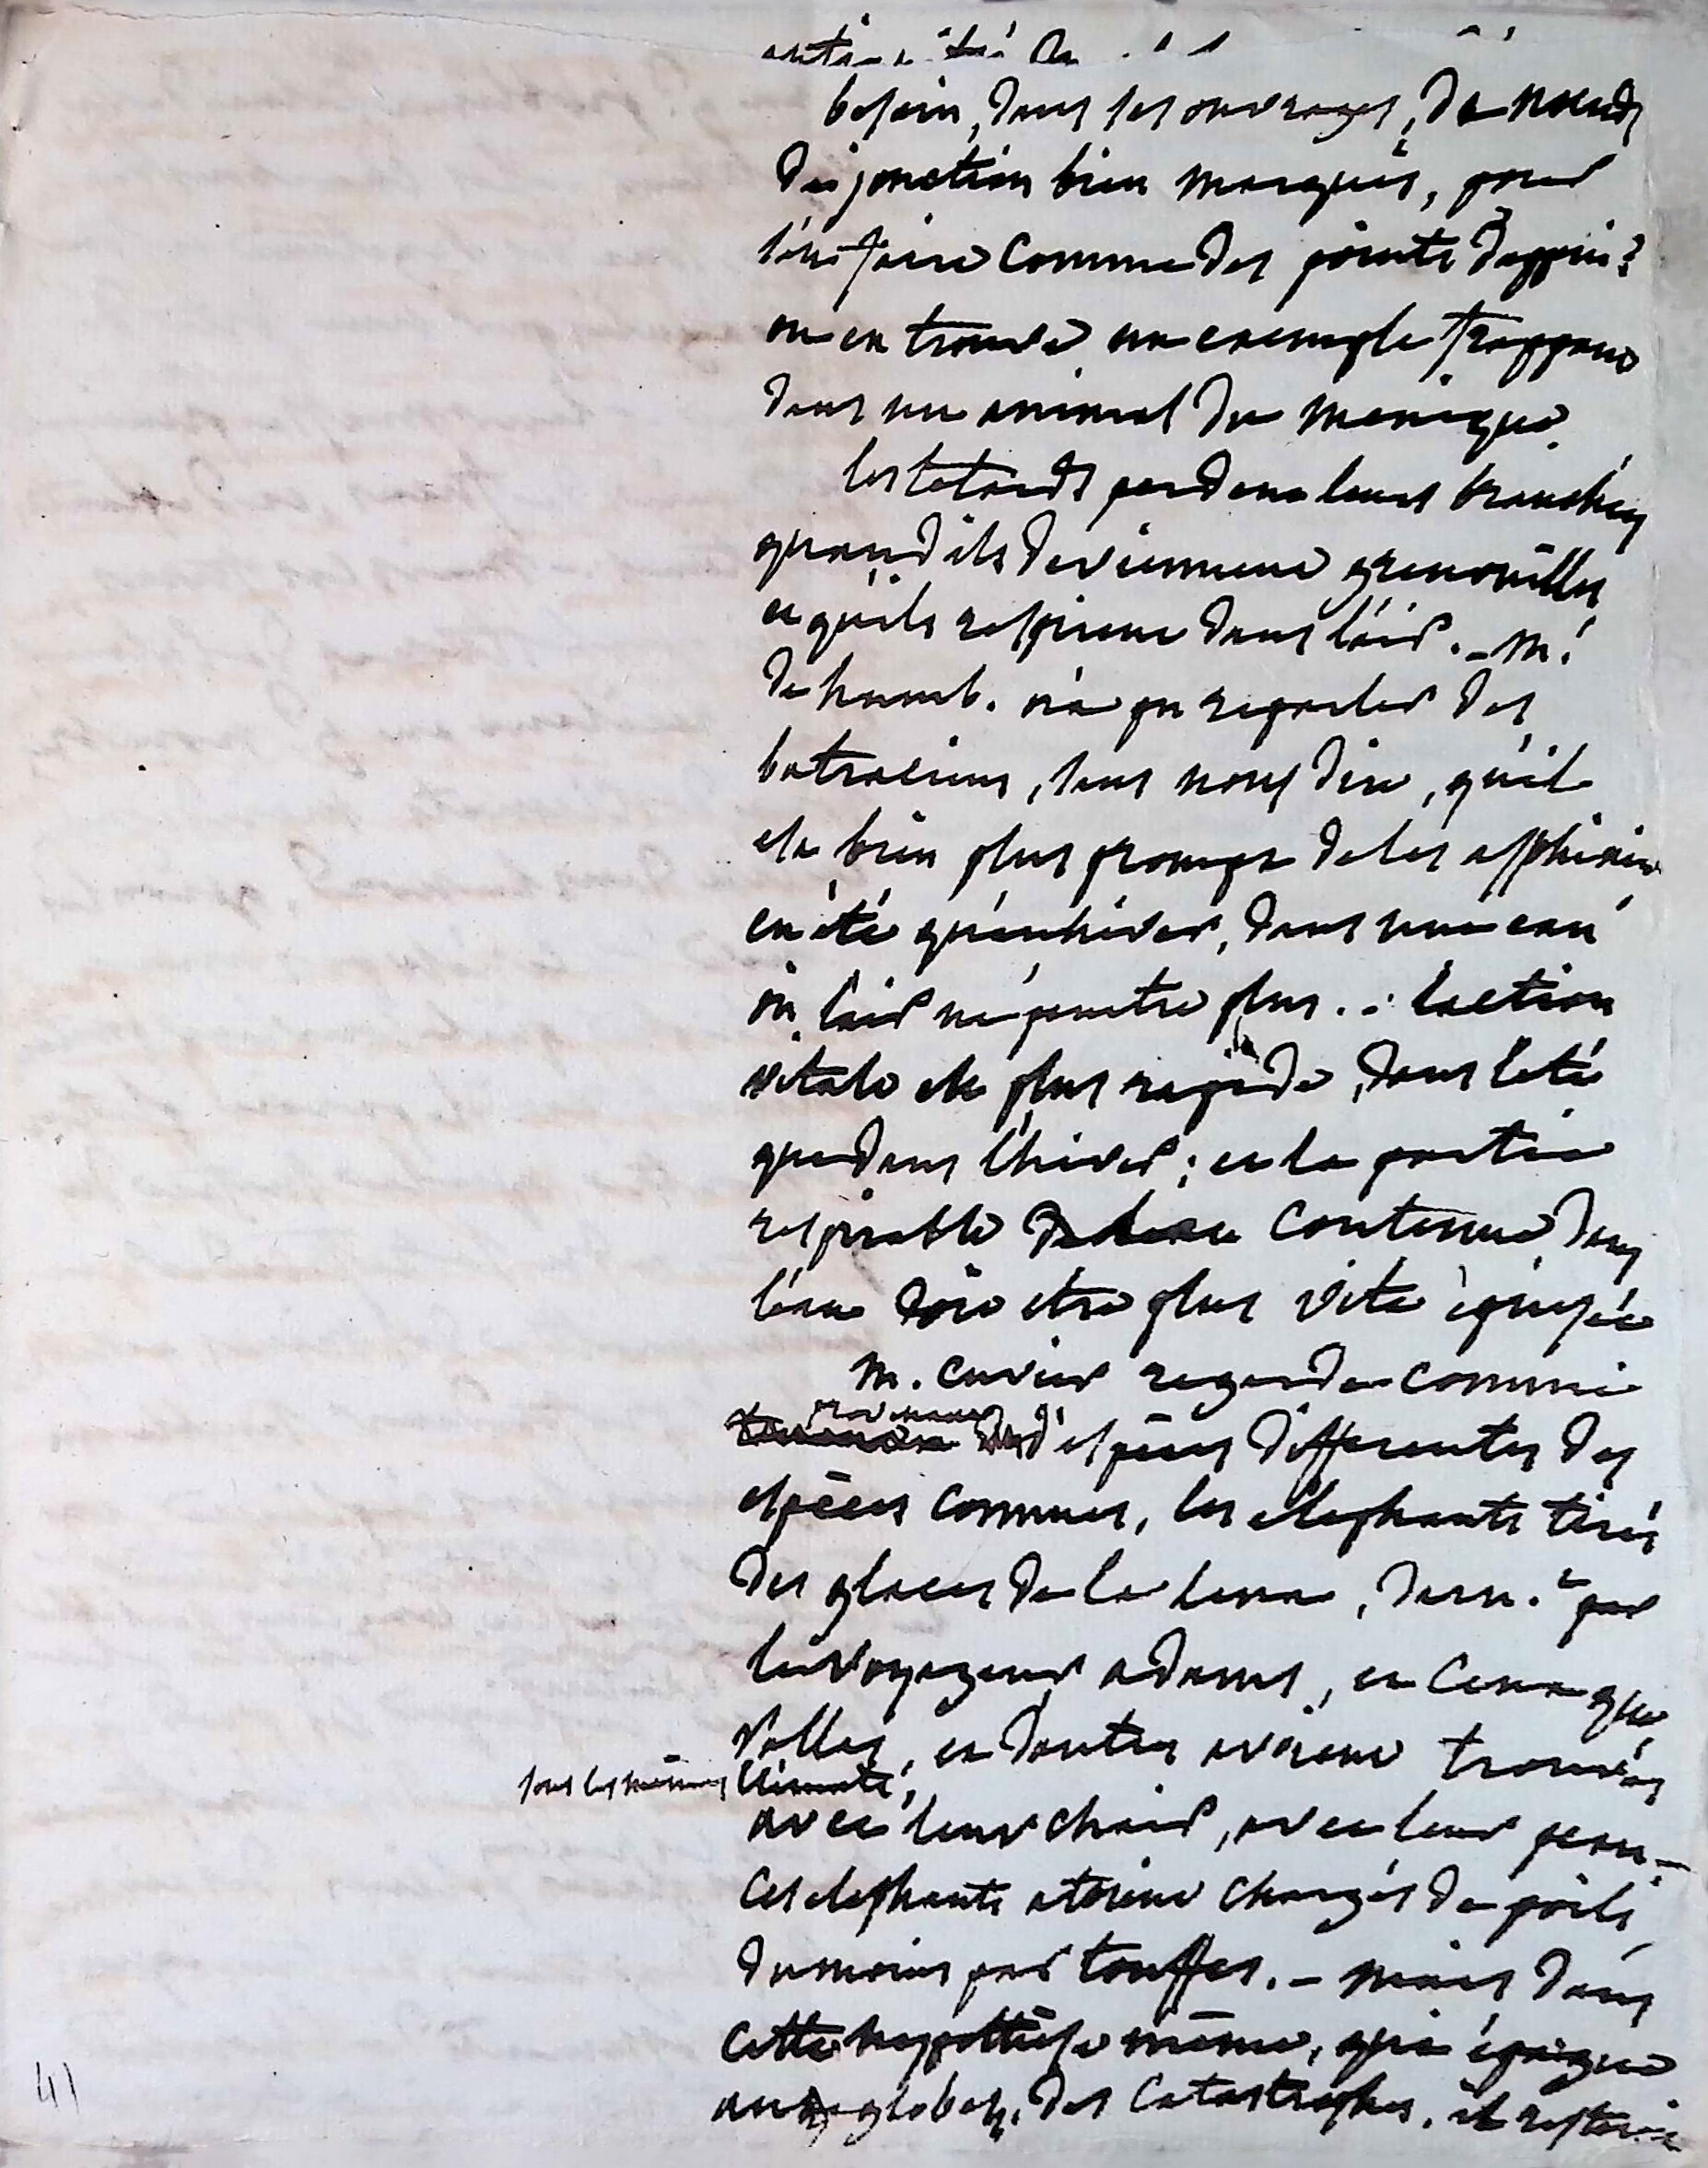 besoin, dans ses ouvrages, de nœuds
de jonction bien marqués, pour
faire comme des points d'appui?
on en trouve un exemple frappant
dans un animal du mexique.
les tetards perdent leurs branchies
quand ils deviennent grenouilles
et qu'ils respirent dans l'air. - M.
de humb. n'a pu regarder des
batraciens, sans nous dire, qu'il
est bien plus prompt de les asphixier
en été qu'en hiver, dans une eau
où l'air ne penetre plus. : l'action
vitale est plus rapide, dans l'eté
que dans l'hiver; et la partie
respirable contenue dans
l'eau doit etre plus vite épuisée
M. Cuvier regarde comme
provenant d'espèces differentes des
espèces connues, les elephants tirés
des glaces de la Lena, dern.t par
le voyageur adams, et ceux que
Pallas, et d'autres avoient trouvés
sous les mêmes climats,
avec leur chair, avec leur peau. -
Ces elephants etoient chargés de poils,
du moins par touffes. - mais dans
cette hyppothèse même, qui épargne
aux globes, des catastrophes, il resteroit
41